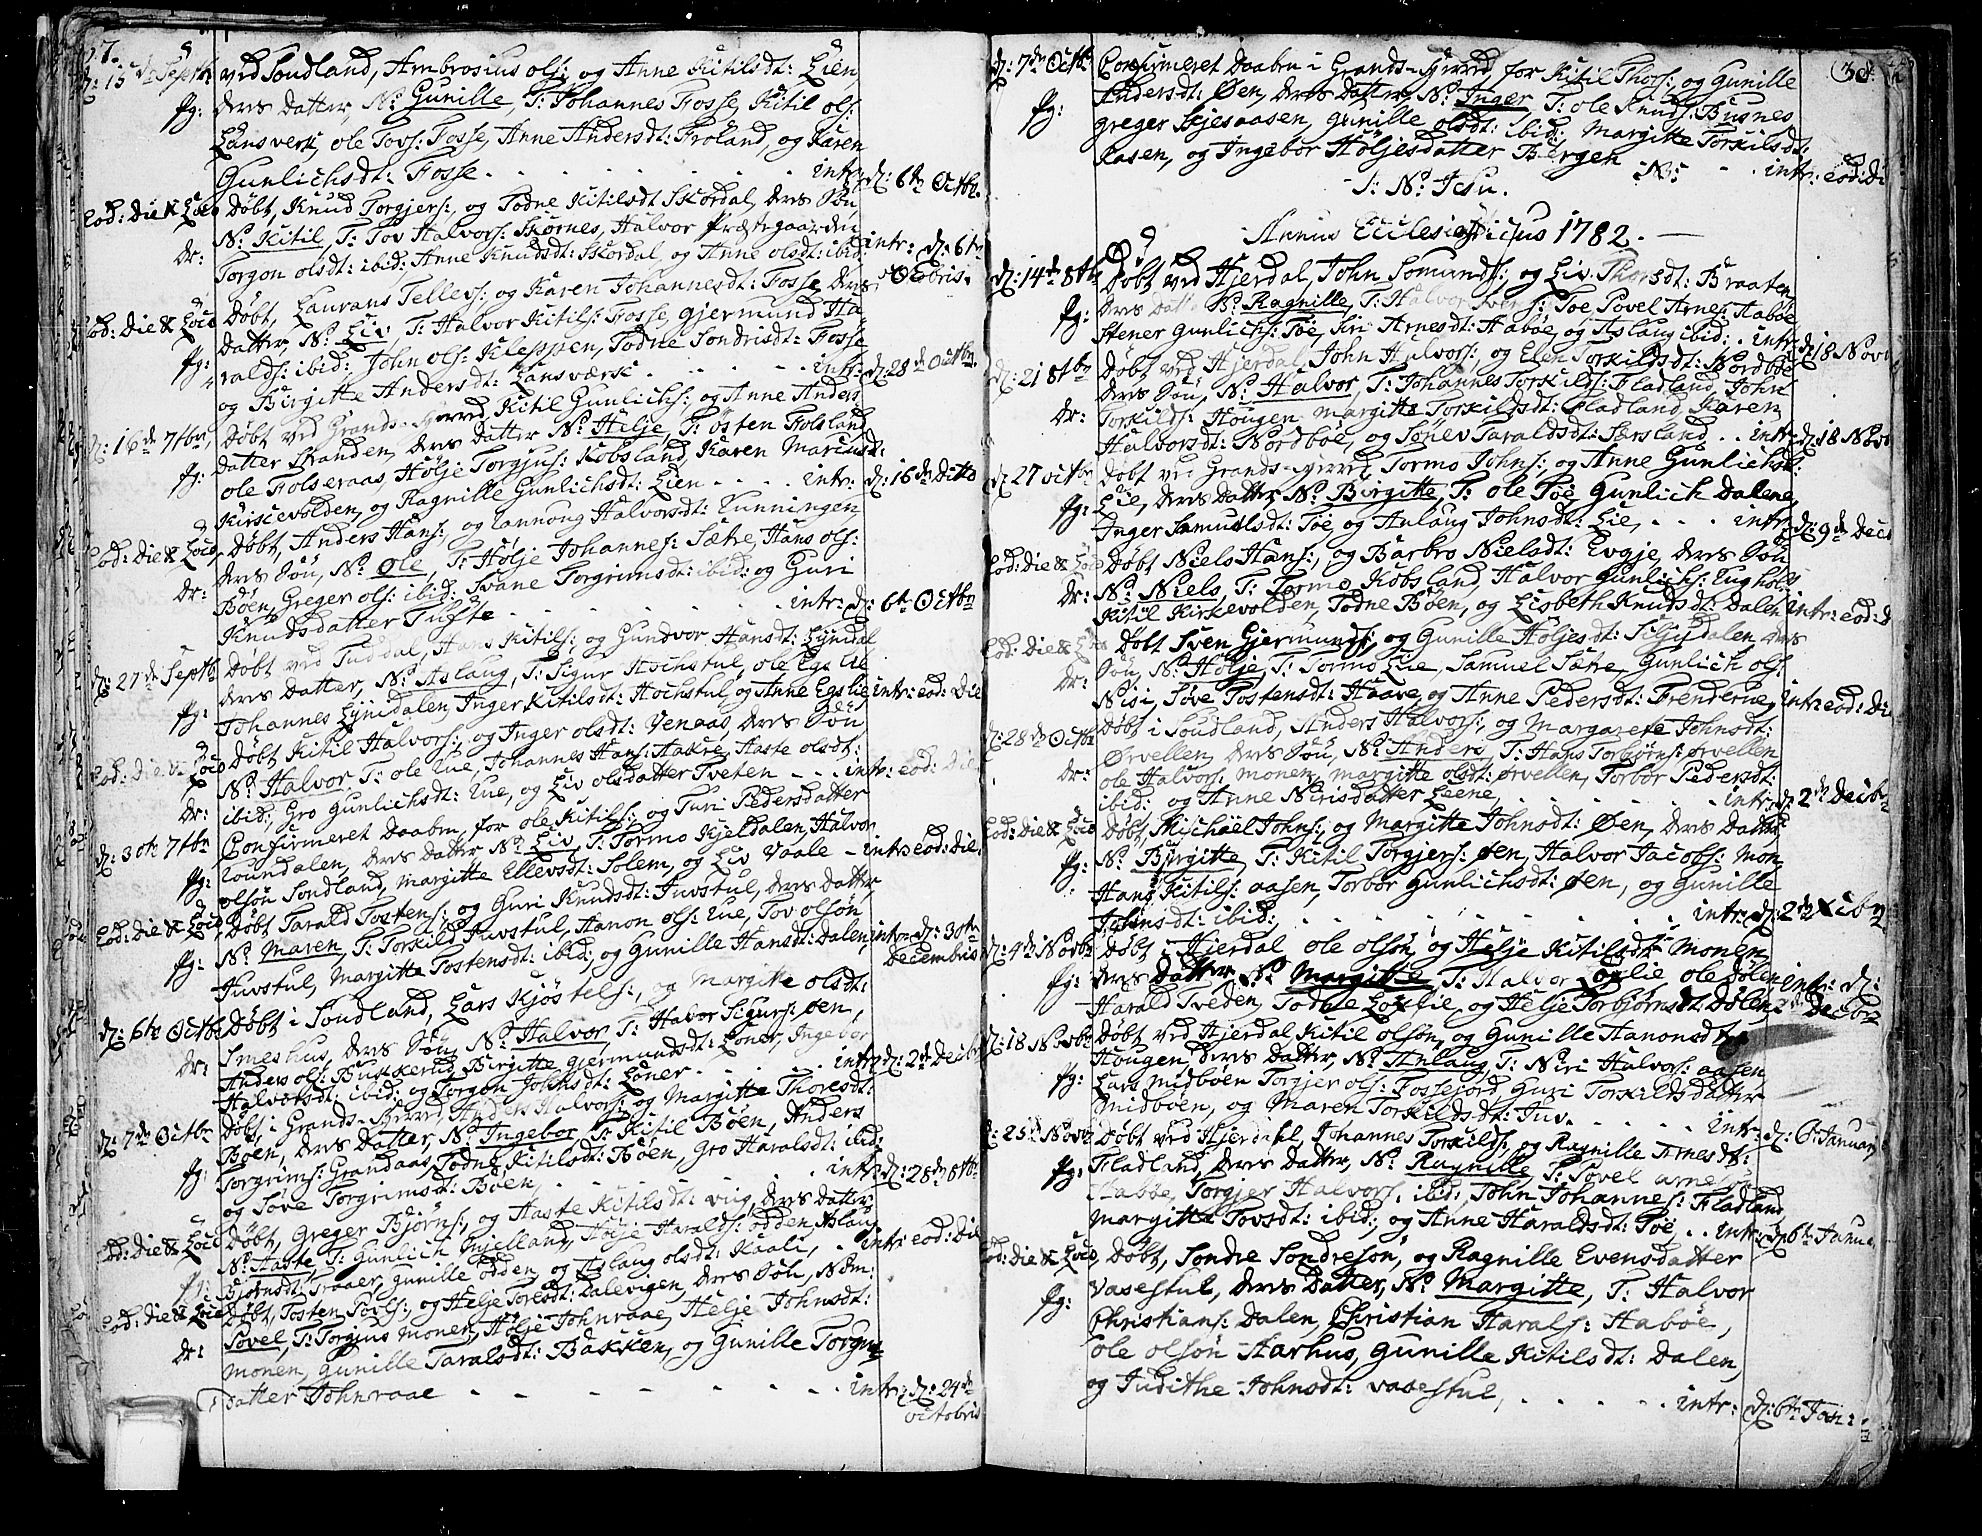 d: 15de Septb: ved Soudland, Ambrosius ols: og Anne Kitilsdt: Lien,
pg: deres Datter, No Gunille, T: Johannes Fosse, Kitil ols:
Lansverk, ole Tovs: Fosse, Anne Andersdt: Froland, og Karen
Gunlichsdt: Fosse - - - intr: d: 6te Octbr.
Eod: Die & Loco Døbt, Knud Torgjers: og Todne Kitilsdt Skordal, deres Søn
dr: No Kitil, T: Tov Halvors: Skornes, Halvor Præstegaarden
Torgon olsdt: ibid: Anne Knudsdt: Skordal, og Anne olsdt: ibid: intr: d: 6te Octobris.
Eod: Die & Loco Døbt, Laurans Tellevs: og Karen Johannesdt: Fosse, deres
pg: Datter, No Liv, T: Halvor Kitils: Fosse, Gjermund Ha-
ralds: ibid: John ols: Kleppen, Todne Sondrisdt: Fosse
og Birgitte Andersdt: Lansværk - - - intr: d: 28de Octbr.
d: 16de 7tbr, Døbt ved Grands-Herred, Kitil Gunlichs: og Anne Anders
pg: datter Skanden, deres Datter No Helje, T: Østen Folsland
ole Folseraas, Hølje Torgjus: Kobsland, Karen Marcusdt:
Kirkevolden, og Ragnille Gunlichsdt: Lien - - - intr: d: 16de Ditto
Eod: Die & Loco, Døbt, Anders Hans: og Rannong Halvorsdt: Runningen
dr: deres Søn, No Ole, T: Hølje Johannes: Sætre, Hans ols:
Bøen, Greger ols: ibid: Svane Torgrimsdt: ibid: og Guri
Knudsdatter Tufte - - - intr: d: 6te Octbr
d: 27de Septbr Døbt ved Tuddal, Hans Kitils: og Gundvor Hansdt: Lyndal
pg: deres Datter, No Aslaug, T: Sigur Hochstul, ole Egslie
Johannes Lyndalen, Inger Kitilsdt: Hochstul, og Anne Egslie intr: eod: Die
Eod: Die & Loco Døbt Kitil Halvors: og Inger olsdt: Venaas, deres Søn
dr: No Halvor T: ole Rue, Johannes Hans: Aakre, Aaste olsdt:
ibid: Gro Gunlichsdt: Rue, og Liv olsdatter Tveten - - - intr: eod: Die
d: 30te 7tbr Confirmeret Daaben, for ole Kitils: og Turi Pedersdatter
pg: Roundalen, deres Datter No Liv, T: Tormo Kjeldalen, Halvor
olsøn Sondland, Margitte Ellevsdt: Solem, og Liv Vaale - intr: eod: Die,
Eod: Die & Loco, Døbt Tarald Tostens: og Guri Knudsdt: Juvstul, deres Datter,
pg: No Maren, T: Torkild Juvstul, Aanon ols: Rue, Tov olsøn
Juvstul, Margitte Tostensdt: ibid: og Gunille Hansdt: Dalen, intr: d: 30te Decembris
d: 6te Octbr Døbt i Sondland, Lars Kjøstels: og Margitte olsdt:
dr: Smeshus, deres Søn, No Halvor, T: Halvor Sigurs: Øen,
Anders ols: Bukkerud, Birgitte Gjermundsdt: Loner, Ingebor
Halvorsdt: ibid: og Torgon Johnsdt: Loner - - - intr: d: 2de Decbr
d: 7de Octbr Døbt i Grands-Herred, Anders Halvors: og Margitte Thoresdt:
pg: Bøen, deres Datter, No Ingebor T: Kitil Bøen, Anders
Torgrims: Grandaas, Todne Kitilsdt: Bøen, Gro Haralsdt: ibid:
og Søve Torgrimsdt: Bøen, - - - intr: d: 28de 8tbr
Eod: Die & Loco Døbt, Greger Bjørns: og Aaste Kitilsdt: viig, deres Datter
pg: No Aaste, T: Gunlich Hjelland, Hølje Haralds: odden, Aslaug
Bjørnsdt: Traaer, gunille odden, og Aslaug olsdt: Kaali, - - intr: eod: Die
Eod: Die & Loco Døbt, Tosten Povels: og Helje Toresdt: Dalevigen, deres Søn, Nom:
dr: Povel, T: Torgjus Monen, Hølje Johnraae, Helje Johnsdt:
Monen, Gunille Taralsdt: Bakken, og Gunille Torgju-
datter Johnraae - - - intr: d: 24de octobris
d: 7de Octbr Confirmeret Daaben i Grands-Herred, for Kitil Thors: og Gunille
pg: Andersdt: Øen, deres Datter No Inger T: ole Knuds: Busnes
Greger Bejesaasen, gunille olsdt: ibid: Margitte Torkilsdt.
Aasen, og Ingebor Høljesdatter Bergen - - - intr: eod: Di
I: N: Jesu.
Annus Ecclesiasticus 1782.
d: 14de 8tbr Døbt ved Hjerdal, John Somunds: og Liv Thorsdt: Braaten
pg: deres Datt: No Ragnille, T: Halvor Toe, Povel Arnes: Habøe
Stener Gunlichs: Toe, Siri Arnesdt: Habøe, og Aslaug ibid: . intr: d: 18 Nov
d: 21 8tbr Døbt ved Hjerdal, John Halvors: og Elen Torkildsdt: Nordbøe
dr: deres Søn, No Halvor, T: Johannes Torkilds: Fladland, John
Torkilds: Hougen, Margitte Torkildsdt: Fladland, Karen
Halvorsdt: Nordbøe, og Sønev Taraldsdt: Særsland . . intr: d: 18 Nov
d: 27 octbr Døbt ved Grands-Herred, Tormo Johns: og Anne Gunlichsdt:
pg: Lie, deres Datter No Birgitte, T: ole Toe, Gunlich Dalene,
Inger Samuelsdt: Toe, og Anlaug Johnsdt: Lie, - - - intr: d: 9de Decb
Eod: Die & Loco Døbt Niels Hans: og Barbro Nielsdt: Evgje, deres Søn
dr: No Niels, T: Tormo Kobsland, Halvor Gunlichs: Rughol
Kitil Kirkevolden, Todne Bøen, og Lisbeth Knudsdt: Dalen intr: eod: d
Eod: Die & Loco Døbt Sven Gjermunds: og Gunille Høljesdt: Siljudalen, deres
dr: Søn, No Hølje, T: Tormo Lie, Samuel Sætre, Gunlich ols:
Nisi, Søve Tostensdt: Haave, og Anne Pedersdt: Frenderne, intr: eod: Di
d: 28de Octbr Døbt i Soudland, Anders Halvors: og Margarete Johnsdt:
dr: Ørvellen, deres Søn, No Anders, T: Hans Torbørns: ørvellen
ole Halvors: Monen, Margitte olsdt: ørvellen, Torbor Pedersdt:
ibid: og Anne Nirisdatter Leene, - - - intr: d: 2de Decbr
Eod: Die & Loco Døbt, Michael Johns: og Margitte Johnsdt: Øen, deres Datter
pg: No Byrgitte, T: Kitil Torgjers: øen, Halvor Jacobs: Mon
Hans Kitils: aasen, Torbor Gunlichsdt: øen, og Gunille
Johnsdt: ibid: - - - intr: d: 2de Xcbr
d: 4de Novbr Døbt i Hjerdal ole olsøn og Helje Kitilsdt: Monen,
pg: deres Datter No Margitte, T: Halvor Loxlie ole Dølen
Harald Tveden, Todne Loxlie, og Helje Torbjørnsdt: Dølen, intr: d: 2de Decbr
d: 18 Novbr Døbt ved Hjerdal Kitil olsøn, og Gunille Aanonsdt
pg: Hougen, deres Datter, No Anlaug, T: Niri Halvors: aasen
Lars Midbøen Torgjer ols: Fossejord, Guri Torkildsdatter
Midbøen, og Maren Torkildsdt: Juv. - - - intr:
d: 25de Novbr Døbt ved Hjerdahl, Johannes Torkilds: og Ragnille Arnesdt: d: 6te Januar
pg: Fladland, deres Datter, No Ragnille, T: Povel arnesøn
Habøe, Torgjer Halvors: ibid: John Johannes: Fladland,
Margitte Tovsdt: ibid: og Anne Haraldsdt: Toe, . . intr: d: 6te Janua
Eod: Die & Loco, Døbt, Sondre Sondresøn, og Ragnille Evensdatter
pg: Vasestul, deres Datter, No Margitte, T: Halvor
Christians: Dalen, Christian Harals: Habøe,
Ole olsøn Aarhus, Gunille Kitilsdt: Dalen,
og Judithe Johnsdt: Vasestul, - - - intr: d: 6te Jan: